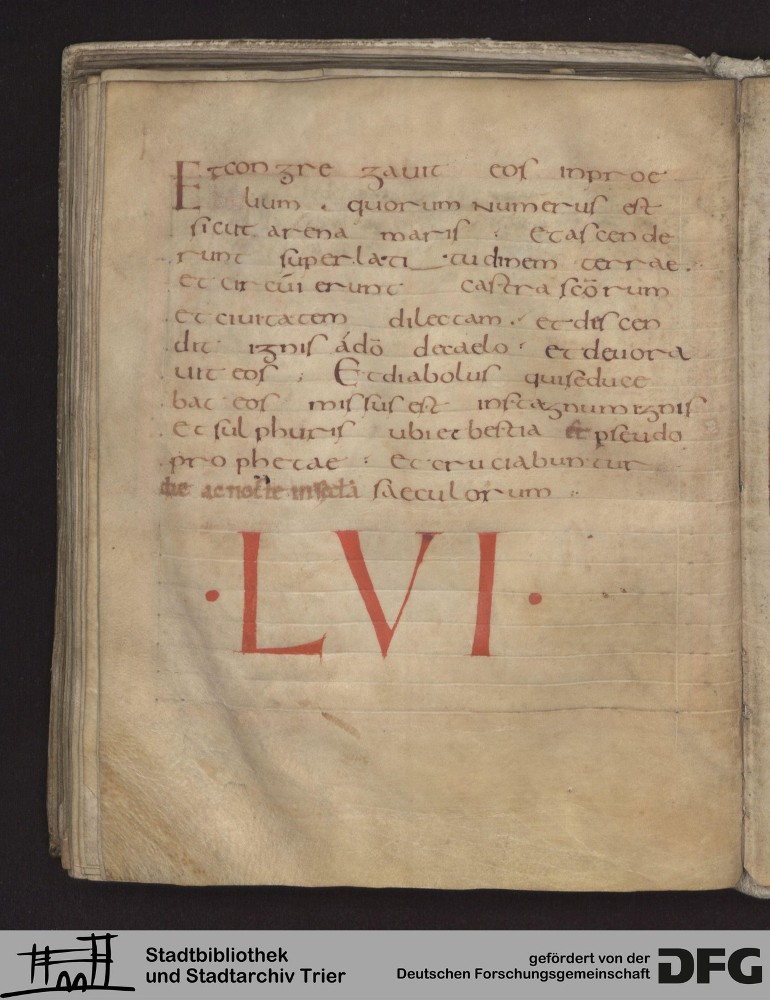 Et con gre gavit eos in proe
lium . quorum numerus est
sicut arena maris : Et ascende
runt super lati tudinem terrae .
et circui erunt castra scōrum
et civitatem dilectam . et discen
dit ignis á dō de caelo . et devora
vit eos ; Et diabolus qui seduce
bat eos missus est in stagnum ignis
et sul phuris ubi et bestia et pseudo
pro phetae : Et cruciabuntur
die ac nocte in secla saeculorum :
· LVI ·
Stadtbibliothek
und Stadtarchiv Trier
gefördert von der
Deutschen Forschungsgemeinschaft
DFG